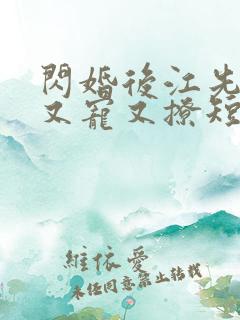 閃婚後江先
又寵又撩短
維依愛
未經同意禁止轉載